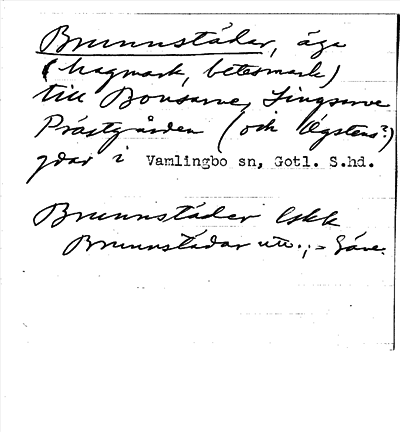 Brunnstädar, äga
(hagmark, betesmark)
till Bonsarve, Lingsarve
Prästgården (och Ögstens?)
gdar i Vamlingbo sn, Gotl. S.hd.
Brunnstäder lskk
Brunnstädar utt.; =